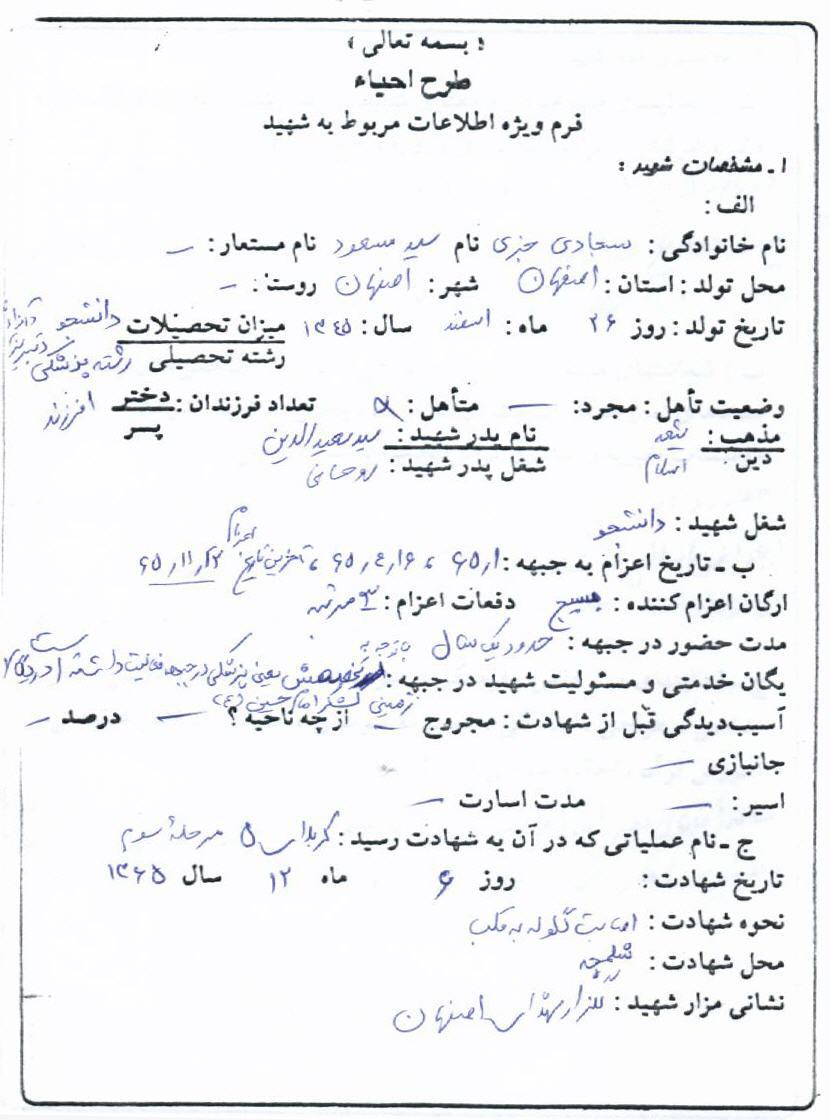 ﴿ بسمه تعالی ﴾
طرح احیاء
فرم ویژه اطلاعات مربوط به شهید
۱ـ مشخصات شهید :
الف :
نام خانوادگی : سجادی جزی نام سید مسعود نام مستعار : —
محل تولد : استان : اصفهان شهر : اصفهان روستا : —
تاریخ تولد : روز ۲۶ ماه : اسفند سال : ۱۳۴۵ میزان تحصیلات دانشجو
رشته تحصیلی رشته پزشکی
وضعیت تأهل : مجرد : — متأهل : تعداد فرزندان : دختر پسر ۱ فرزند
مذهب : شیعه نام پدر شهید : سید سعیدالدین
دین اسلام شغل پدر شهید : روحانی
شغل شهید : دانشجو
ب ـ تاریخ اعزام به جبهه : ۶۵٫۱ ، ۶۵٫۴٫۱۶ ، آخرین تاریخ اعزام ۶۵٫۱۱٫۱۲
ارگان اعزام کننده : بسیج دفعات اعزام : ۳ مرتبه
مدت حضور در جبهه : حدود یک سال باتوجه به
یگان خدمتی و مسئولیت شهید در جبهه : تخصصش یعنی پزشکی در جبهه فعالیت داشته است
زمینی لشکر امام حسین (ع)
آسیب‌دیدگی قبل از شهادت : مجروح — از چه ناحیه ؟ — درصد —
جانبازی —
اسیر : — مدت اسارت —
ج ـ نام عملیاتی که در آن به شهادت رسید : کربلای ۵ مرحله سوم
تاریخ شهادت : روز ۶ ماه ۱۲ سال ۱۳۶۵
نحوه شهادت : اصابت گلوله به قلب
محل شهادت : شلمچه
نشانی مزار شهید : گلزار شهدای اصفهان